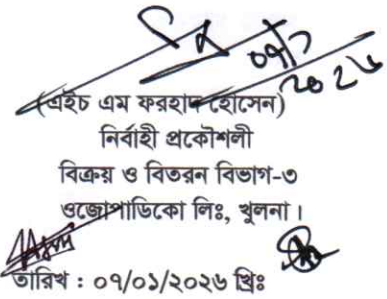 ০৭/১
২০২৬
(এইচ এম ফরহাদ হোসেন)
নির্বাহী প্রকৌশলী
বিক্রয় ও বিতরন বিভাগ-৩
ওজোপাডিকো লিঃ, খুলনা।
তারিখ : ০৭/০১/২০২৬ খ্রিঃ